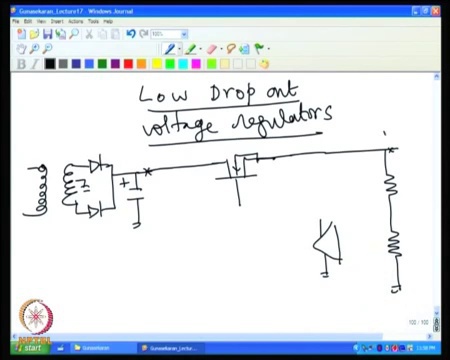 Gunasekaran_Lecture17 - Windows Journal
File Edit View Insert Actions Tools Help
100%
B I
Low Drop out
voltage regulators
+
100 / 100
NPTEL
start Gunasekaran Gunasekaran_Lectu...